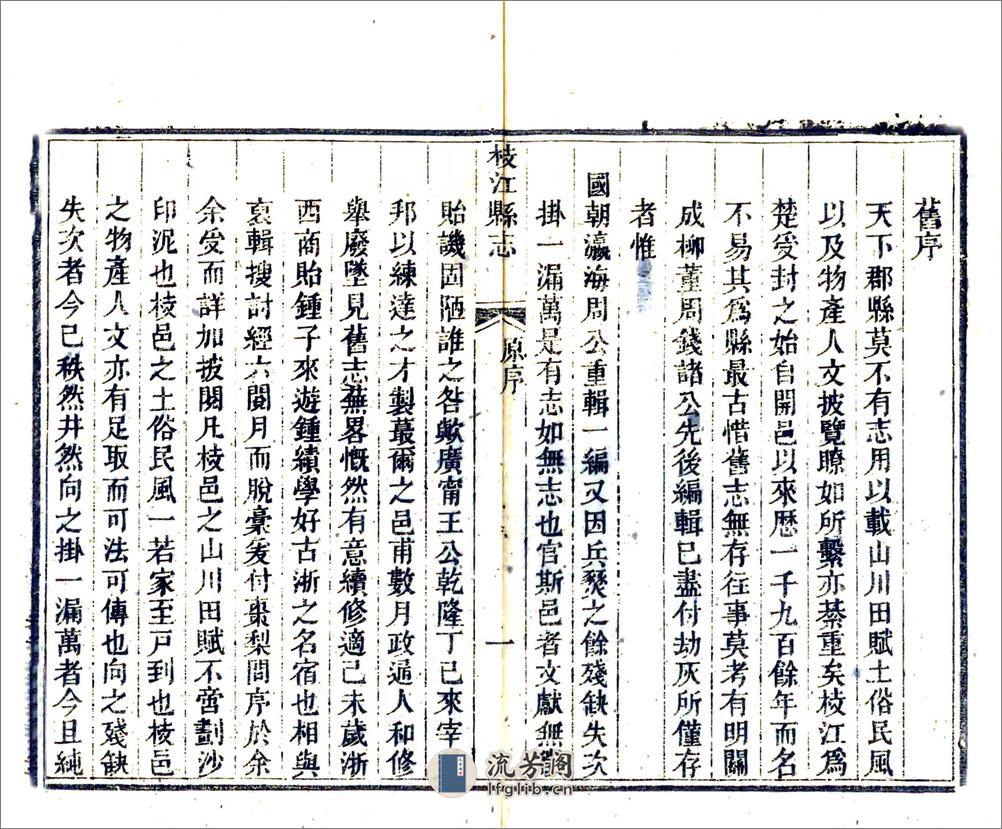 舊序
天下郡縣莫不有志用以載山川田賦土俗民風
以及物產人文披覽瞭如所繫亦綦重矣枝江為
楚受封之始自開邑以來歷一千九百餘年而名
不易其為縣最古惜舊志無存往事莫考有明關
成柳董周錢諸公先後編輯已盡付劫灰所僅存
者惟
國朝瀛海周公重輯一編又因兵燹之餘殘缺失次
掛一漏萬是有志如無志也官斯邑者文獻無
枝江縣志
原序
一
貽譏固陋誰之咎歟廣甯王公乾隆丁巳來宰
邦以練達之才製蕞爾之邑甫數月政通人和修
舉廢墜見舊志蕪畧慨然有意續修適己未歲浙
西商貽鍾子來遊鍾績學好古浙之名宿也相與
裒輯搜討經六閱月而脫稾爰付棗梨問序於余
余受而詳加披閱凡枝邑之山川田賦不啻劃沙
印泥也枝邑之土俗民風一若家至戸到也枝邑
之物產人文亦有足取而可法可傳也向之殘缺
失次者今已秩然井然向之掛一漏萬者今且純
流芳閣
lfglib.cn